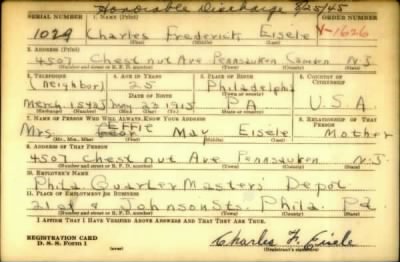 Honorable Discharge 8/25/45
SERIAL NUMBER 1. NAME (Print) ORDER NUMBER
1029 Charles Frederick Eisele V-1626
(First) (Middle) (Last)
2. ADDRESS (Print)
4507 Chestnut Ave Pennsauken Camden N.J.
(Number and street or R. F. D. number) (Town) (County) (State)
3. TELEPHONE 4. AGE IN YEARS 5. PLACE OF BIRTH 6. COUNTRY OF CITIZENSHIP
(Neighbor) 25 Philadelphia
DATE OF BIRTH
Merch 1543J May 23 1915 PA U.S.A.
(Exchange) (Number) (Mo.) (Day) (Yr.) (State or country)
7. NAME OF PERSON WHO WILL ALWAYS KNOW YOUR ADDRESS 8. RELATIONSHIP OF THAT PERSON
Effie
Mrs. May Eisele Mother
(Mr., Mrs., Miss) (First) (Middle) (Last)
9. ADDRESS OF THAT PERSON
4507 Chestnut Ave Pennsauken N.J.
(Number and street or R. F. D. number) (Town) (County) (State)
10. EMPLOYER'S NAME
Phila Quarter Masters Depot
11. PLACE OF EMPLOYMENT OR BUSINESS
21st & Johnson Sts. Phila. Pa
(Number and street or R. F. D. number) (Town) (County) (State)
I AFFIRM THAT I HAVE VERIFIED ABOVE ANSWERS AND THAT THEY ARE TRUE.
REGISTRATION CARD
D. S. S. Form 1 (over) Charles F. Eisele
(Registrant's signature)